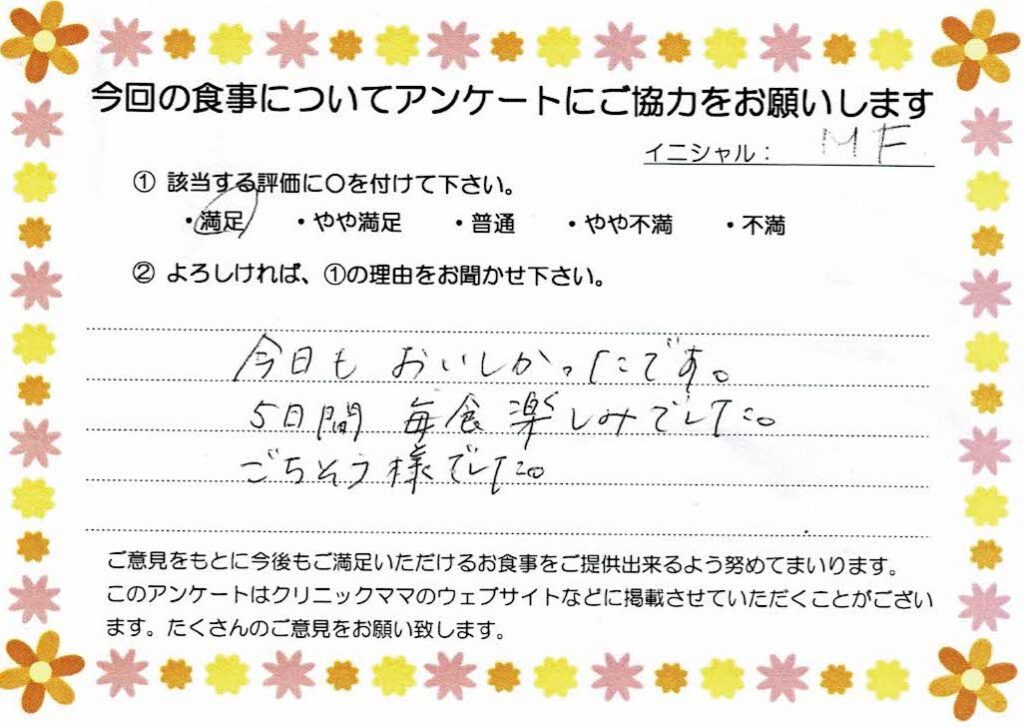 今回の食事についてアンケートにご協力をお願いします
イニシャル： MF
① 該当する評価に〇を付けて下さい。
・満足 ・やや満足 ・普通 ・やや不満 ・不満
② よろしければ、①の理由をお聞かせ下さい。
今日も おいしかったです。
5日間 毎食 楽しみでした。
ごちそう様でした。
ご意見をもとに今後もご満足いただけるお食事をご提供出来るよう努めてまいります。
このアンケートはクリニックママのウェブサイトなどに掲載させていただくことがござい
ます。たくさんのご意見をお願い致します。